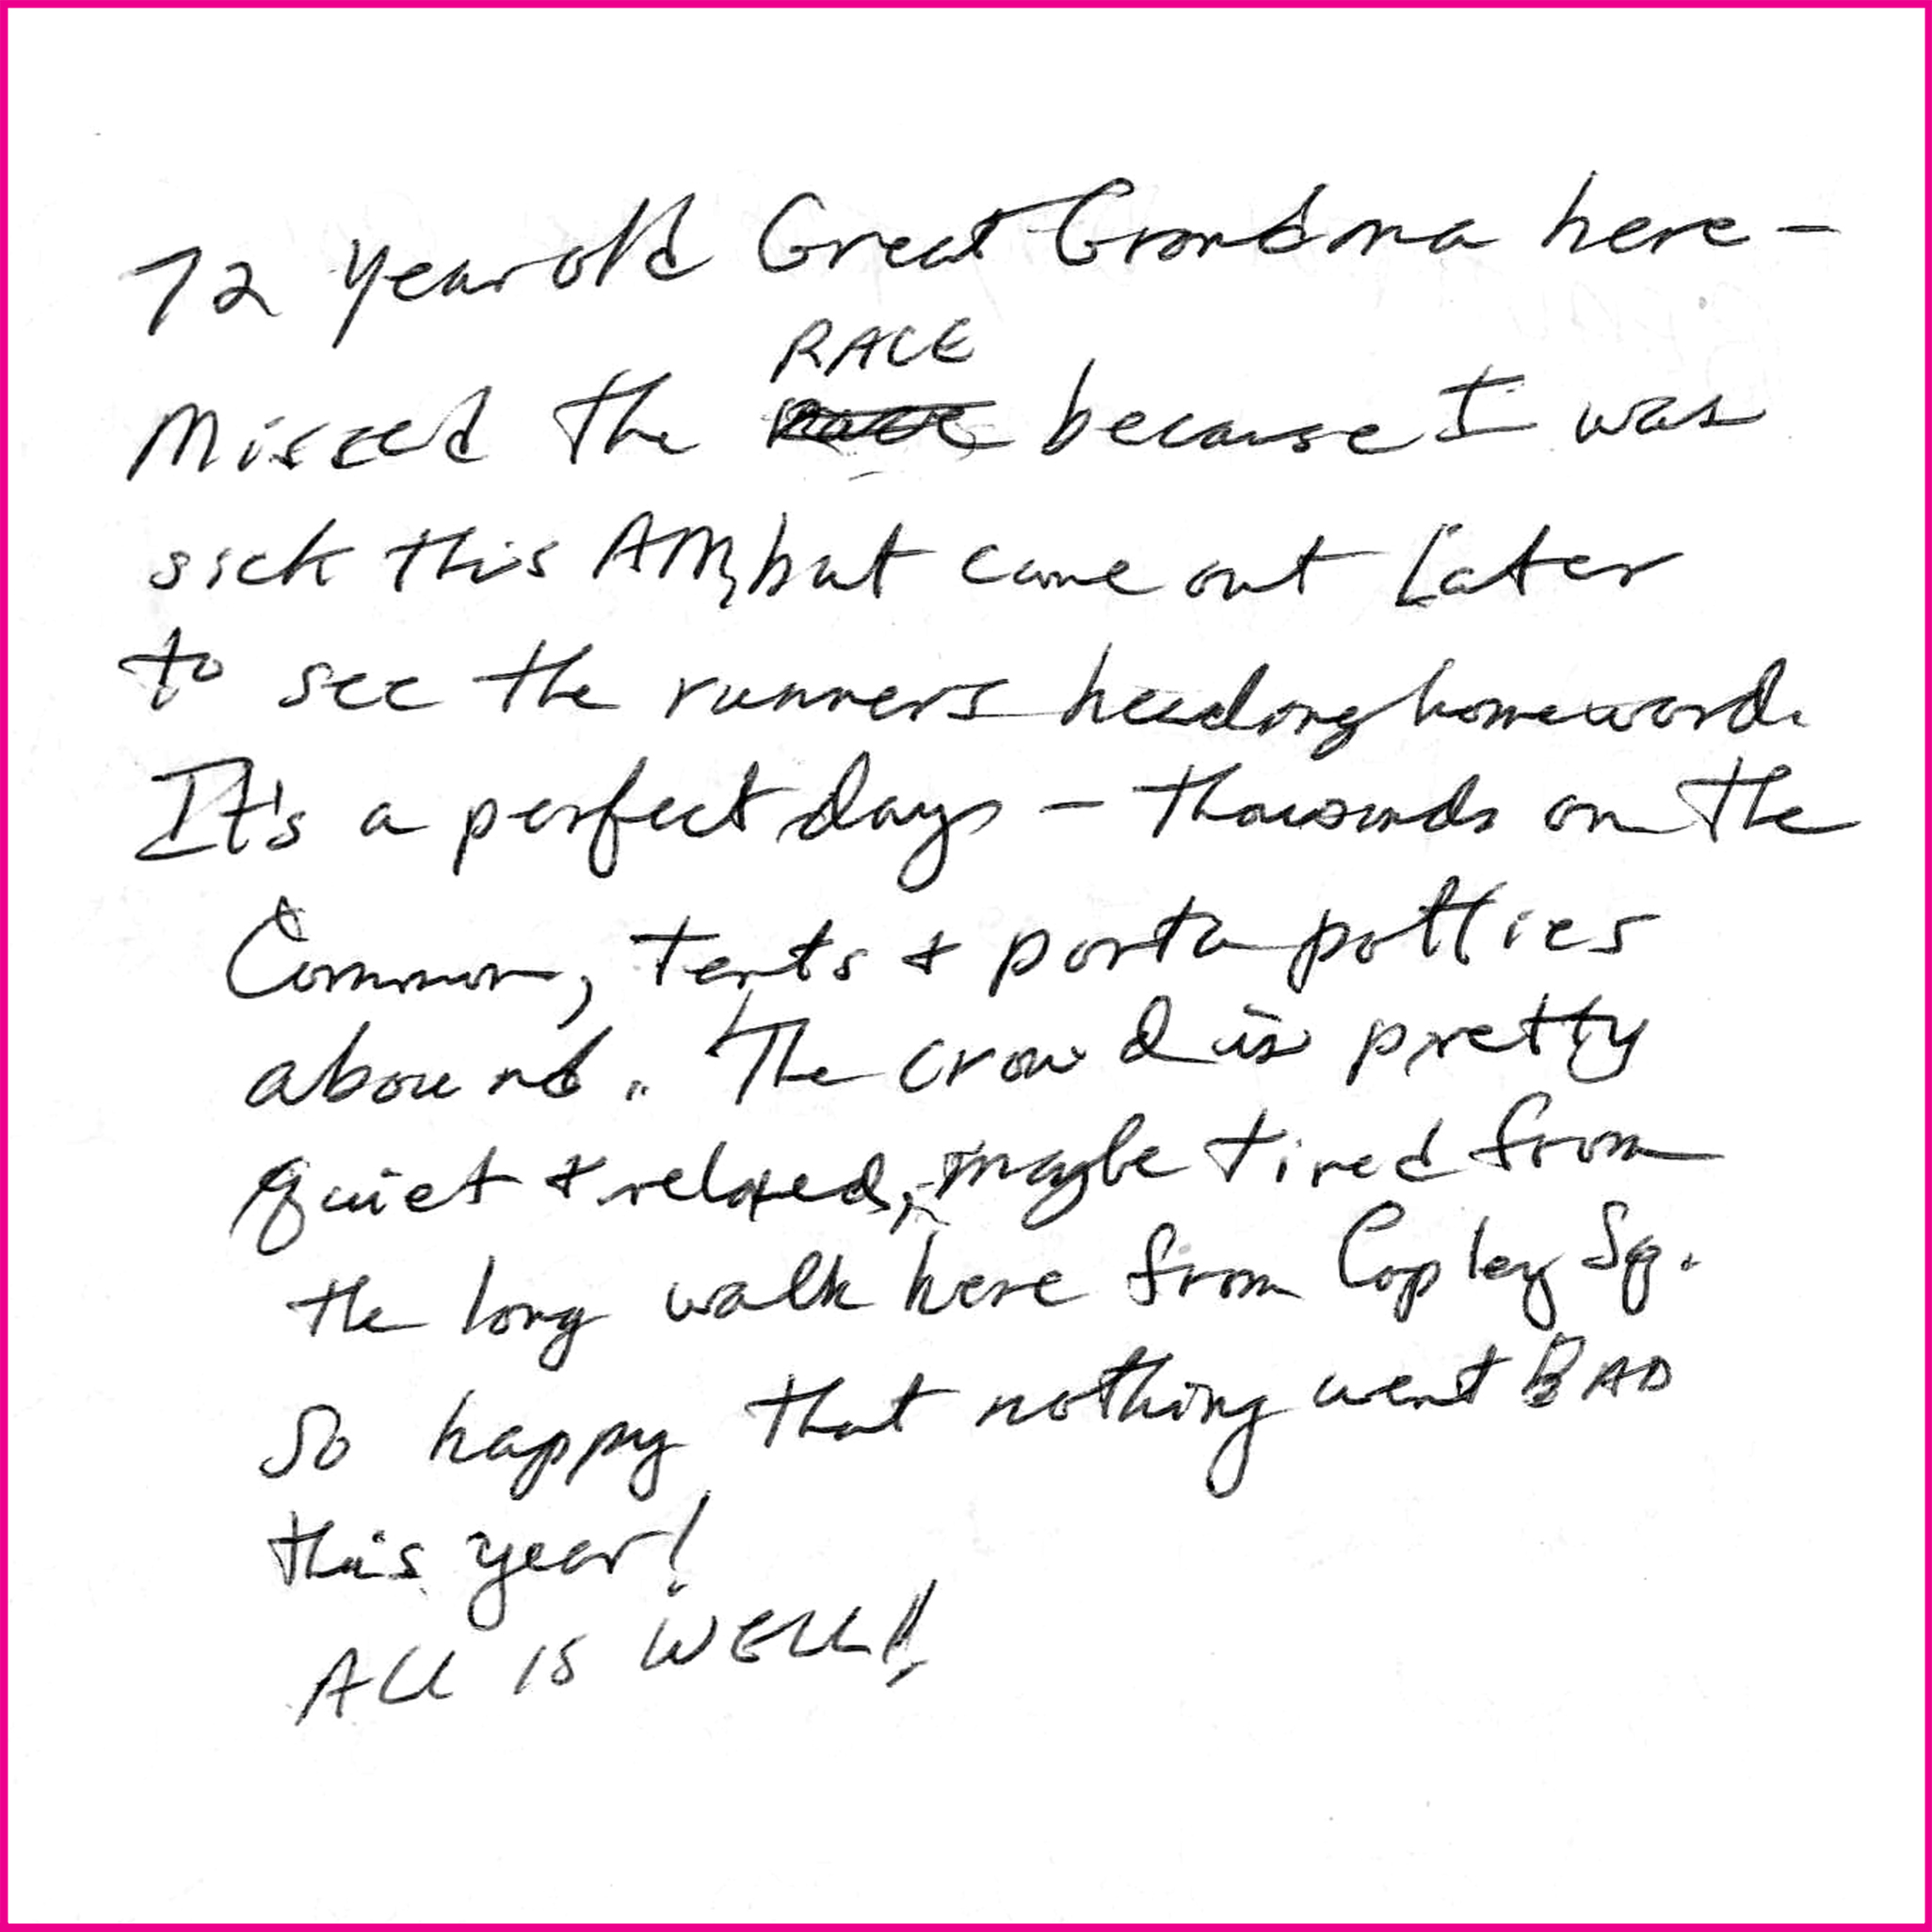 72 year old Great Grandma here –
RACE
Missed the because I was
sick this AM, but came out later
to see the runners heading homeward.
It's a perfect day – thousands on the
Common, tents + porta potties
abound. The crowd is pretty
quiet + relaxed, maybe tired from
the long walk here from Copley Sq.
So happy that nothing went BAD
this year!
ALL IS WELL!!